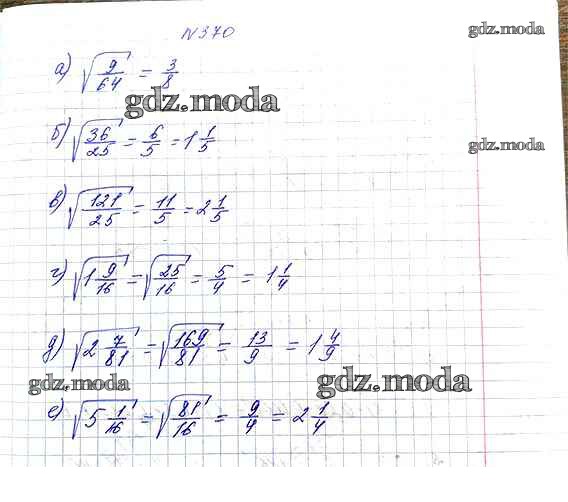 №370
gdz.moda
а) √(9/64) = 3/8
gdz.moda
б) √(36/25) = 6/5 = 1 1/5
gdz.moda
в) √(121/25) = 11/5 = 2 1/5
г) √(1 9/16) = √(25/16) = 5/4 = 1 1/4
д) √(2 7/81) = √(169/81) = 13/9 = 1 4/9
gdz.moda
gdz.moda
е) √(5 1/16) = √(81/16) = 9/4 = 2 1/4